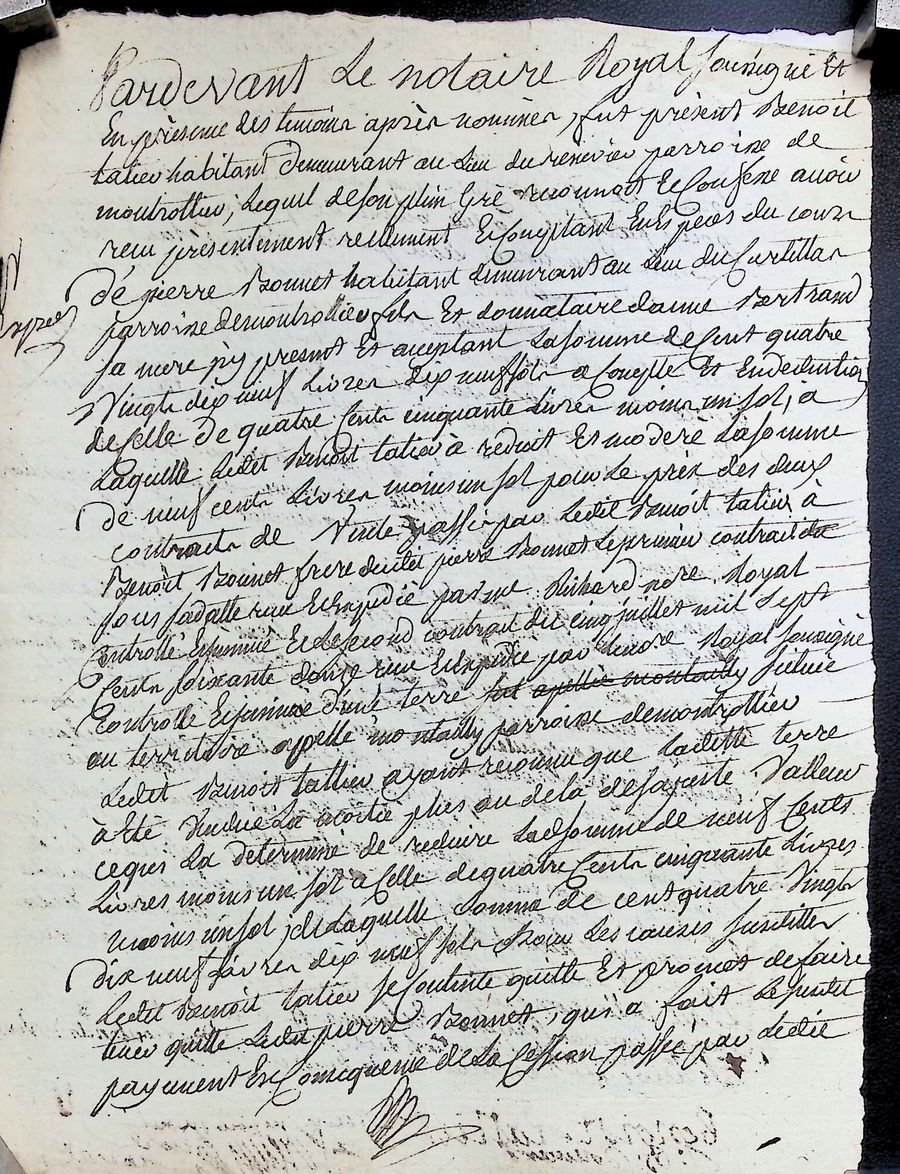 Pardevant Le notaire Royal soussigné Et
En présence des temoins après nommés, fut présent Benoit
tatieu habitant demeurant au Lieu du renevier parroisse de
montrottier, Lequel de son plein Gré reconnoit Et Confesse avoir
recu présentement reellement Et Comptant En Especes du cours
de pierre Bonnet habitant demeurant au Lieu du Curtillar
parroisse de montrottier fils Et donnataire danne Bertrand
sa mere icy present Et aceptant La somme de Cent quatre
Vingts dix neuf Livres dix neuf sols a Compte Et En deduction
de Celle de quatre Cents cinquante Livres moins un sol, a
Laquelle Ledit Benoit tatieu à reduit Et moderé La somme
de neuf cents Livres moins un sol pour Le prix des deux
contracts de Vente passés par Ledit Benoit tatieu à
Benoit Bonnet frere dudit pierre Bonnet Le premier contract
sous sa datte recu Et Expedié par me Richard nore Royal
Controllé Et insinué Et le second contract du cinq juillet mil Sept
Cents soixante douze recu Et Expedié par Le nore Royal soussigné
Controllé Et insinué d'une terre sot apellée montailly scituée
au territoire apellé montailly parroisse de montrottier
Ledit Benoit tattieu ayant reconnu que Ladette terre
à Eté Vendue La moitié plus au dela de sa juste Valleur
ce qui La determiné de reduire Lad somme de neuf Cents
Livres moins un sol a Celle de quatre Cents cinquante Livres
moins un sol, de Laquelle somme de cent quatre Vingts
Dix neuf Livres dix neuf sols Pour Les causes susdittes
Ledit Benoit tatieu se Contente quitte Et promet de faire
tenir quitte Ledit pierre Bonnet, qui a fait Le susdit
payement En Consequence de La Cession passée par Ledit